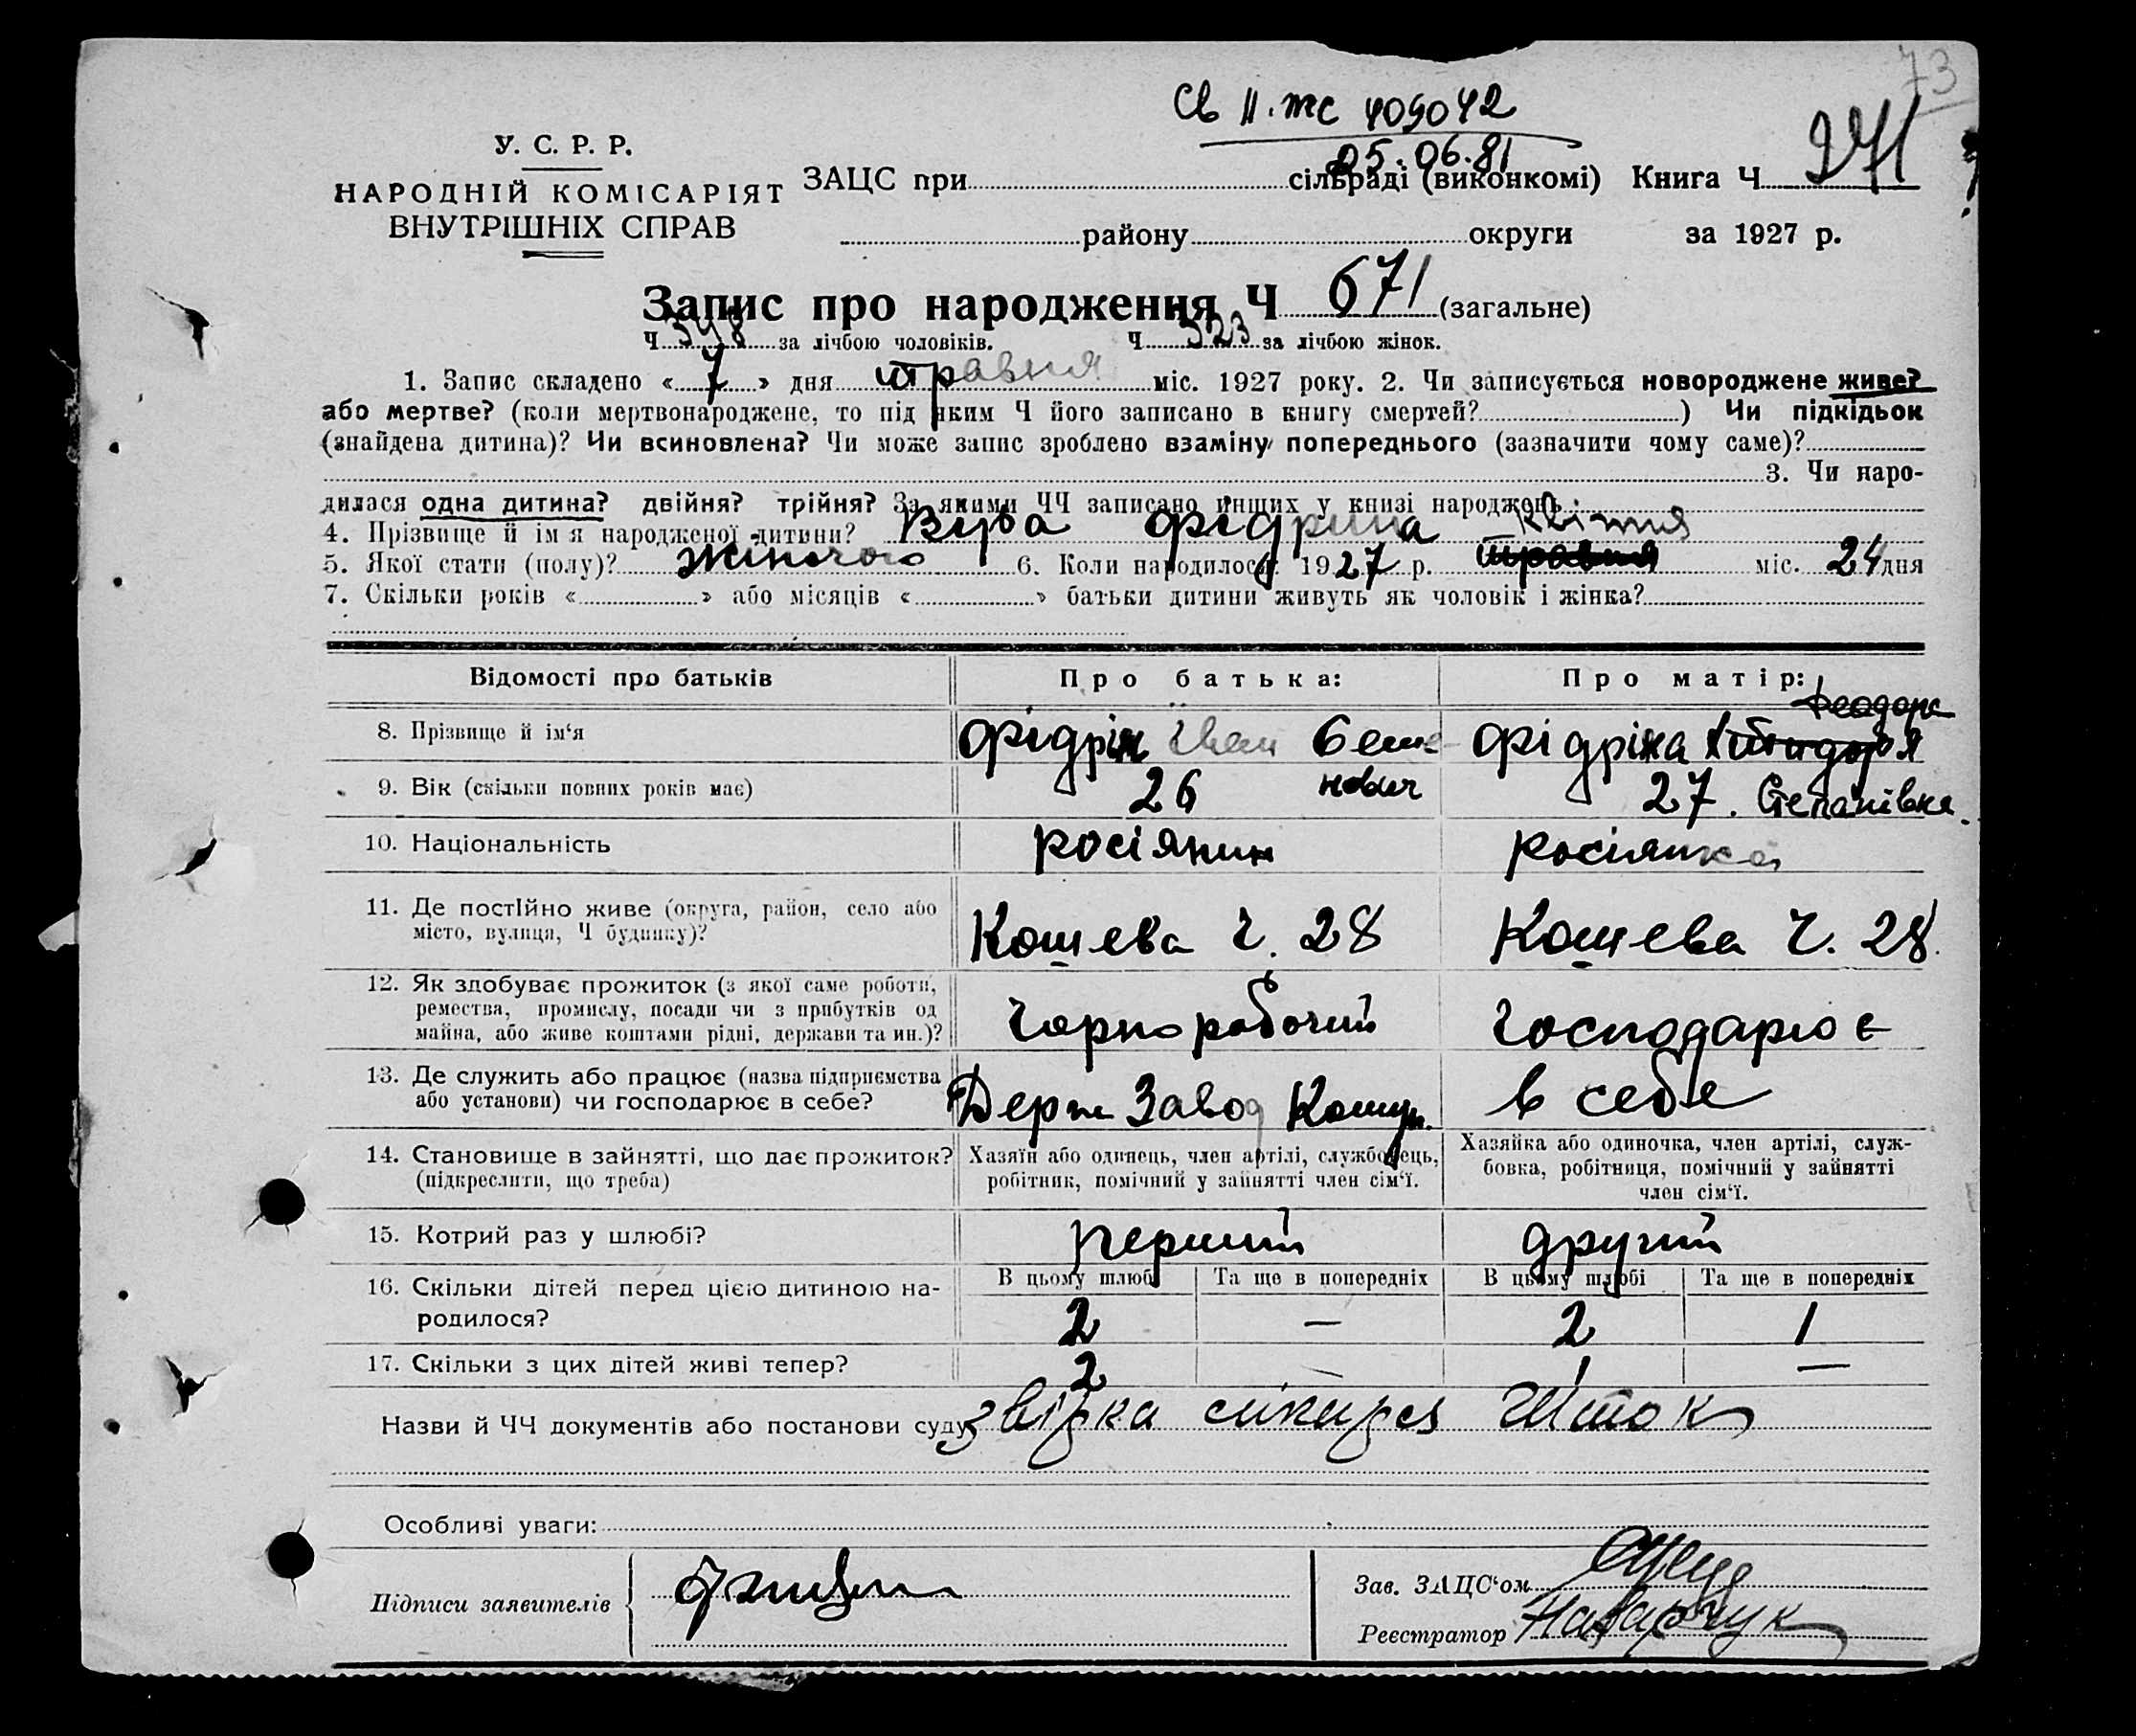 73
Св II. жс 409042
05.06.81
У. С. Р. Р.
НАРОДНІЙ КОМІСАРІЯТ
ВНУТРІШНІХ СПРАВ
ЗАЦС при сільраді (виконкомі) Книга Ч. 271
району округи за 1927 р.
Запис про народження Ч 671 (загальне)
Ч. 348 за лічбою чоловіків. Ч. 323 за лічбою жінок.
1. Запис складено «7» дня травня міс. 1927 року. 2. Чи записується новороджене живе?
або мертве? (коли мертвонароджене, то під яким Ч його записано в книгу смертей? ) Чи підкідьок
(знайдена дитина)? Чи всиновлена? Чи може запис зроблено взаміну попереднього (зазначити чому саме)?
3. Чи наро-
дилася одна дитина? двійня? трійня? За якими ЧЧ записано инших у книзі народжень:
квітня
4. Прізвище й ім я народженої дитини? Віра Фідрина
5. Якої стати (полу)? жіночого 6. Коли народилося? 1927 р. травня міс. 24 дня
7. Скільки років « » або місяців « » батьки дитини живуть як чоловік і жінка?
Відомості про батьків Про батька: Про матір:
Феодора
8. Прізвище й ім‘я Фідрін Іван Семе- Фідріна
9. Вік (скільки повних років має) 26 нович 27. Степанівна.
10. Національність росіянин росіянка
11. Де постійно живе (округа, район, село або
місто, вулиця, Ч будинку)? Кошева Ч. 28 Кошева Ч. 28.
12. Як здобуває прожиток (з якої саме роботи,
ремества, промислу, посади чи з прибутків од
майна, або живе коштами рідні, держави та ин.)? Чорноробочий Господарює
13. Де служить або працює (назва підприємства
або установи) чи господарює в себе? Держ Завод в себе
14. Становище в зайнятті, що дає прожиток?
(підкреслити, що треба)
Хазяїн або одинець, член артілі, службовець,
робітник, помічний у зайнятті член сім‘ї.
Хазяйка або одиночка, член артілі, служ-
бовка, робітниця, помічний у зайнятті
член сім‘ї.
15. Котрий раз у шлюбі? перший другий
В цьому шлюбі Та ще в попередніх В цьому шлюбі Та ще в попередніх
16. Скільки дітей перед цією дитиною на-
родилося? 2 — 2 1
17. Скільки з цих дітей живі тепер? 2 — 1 —
Назви й ЧЧ документів або постанови суду
Особливі уваги:
Підписи заявителів
Зав. ЗАЦС‘ом
Реєстратор Назарчук